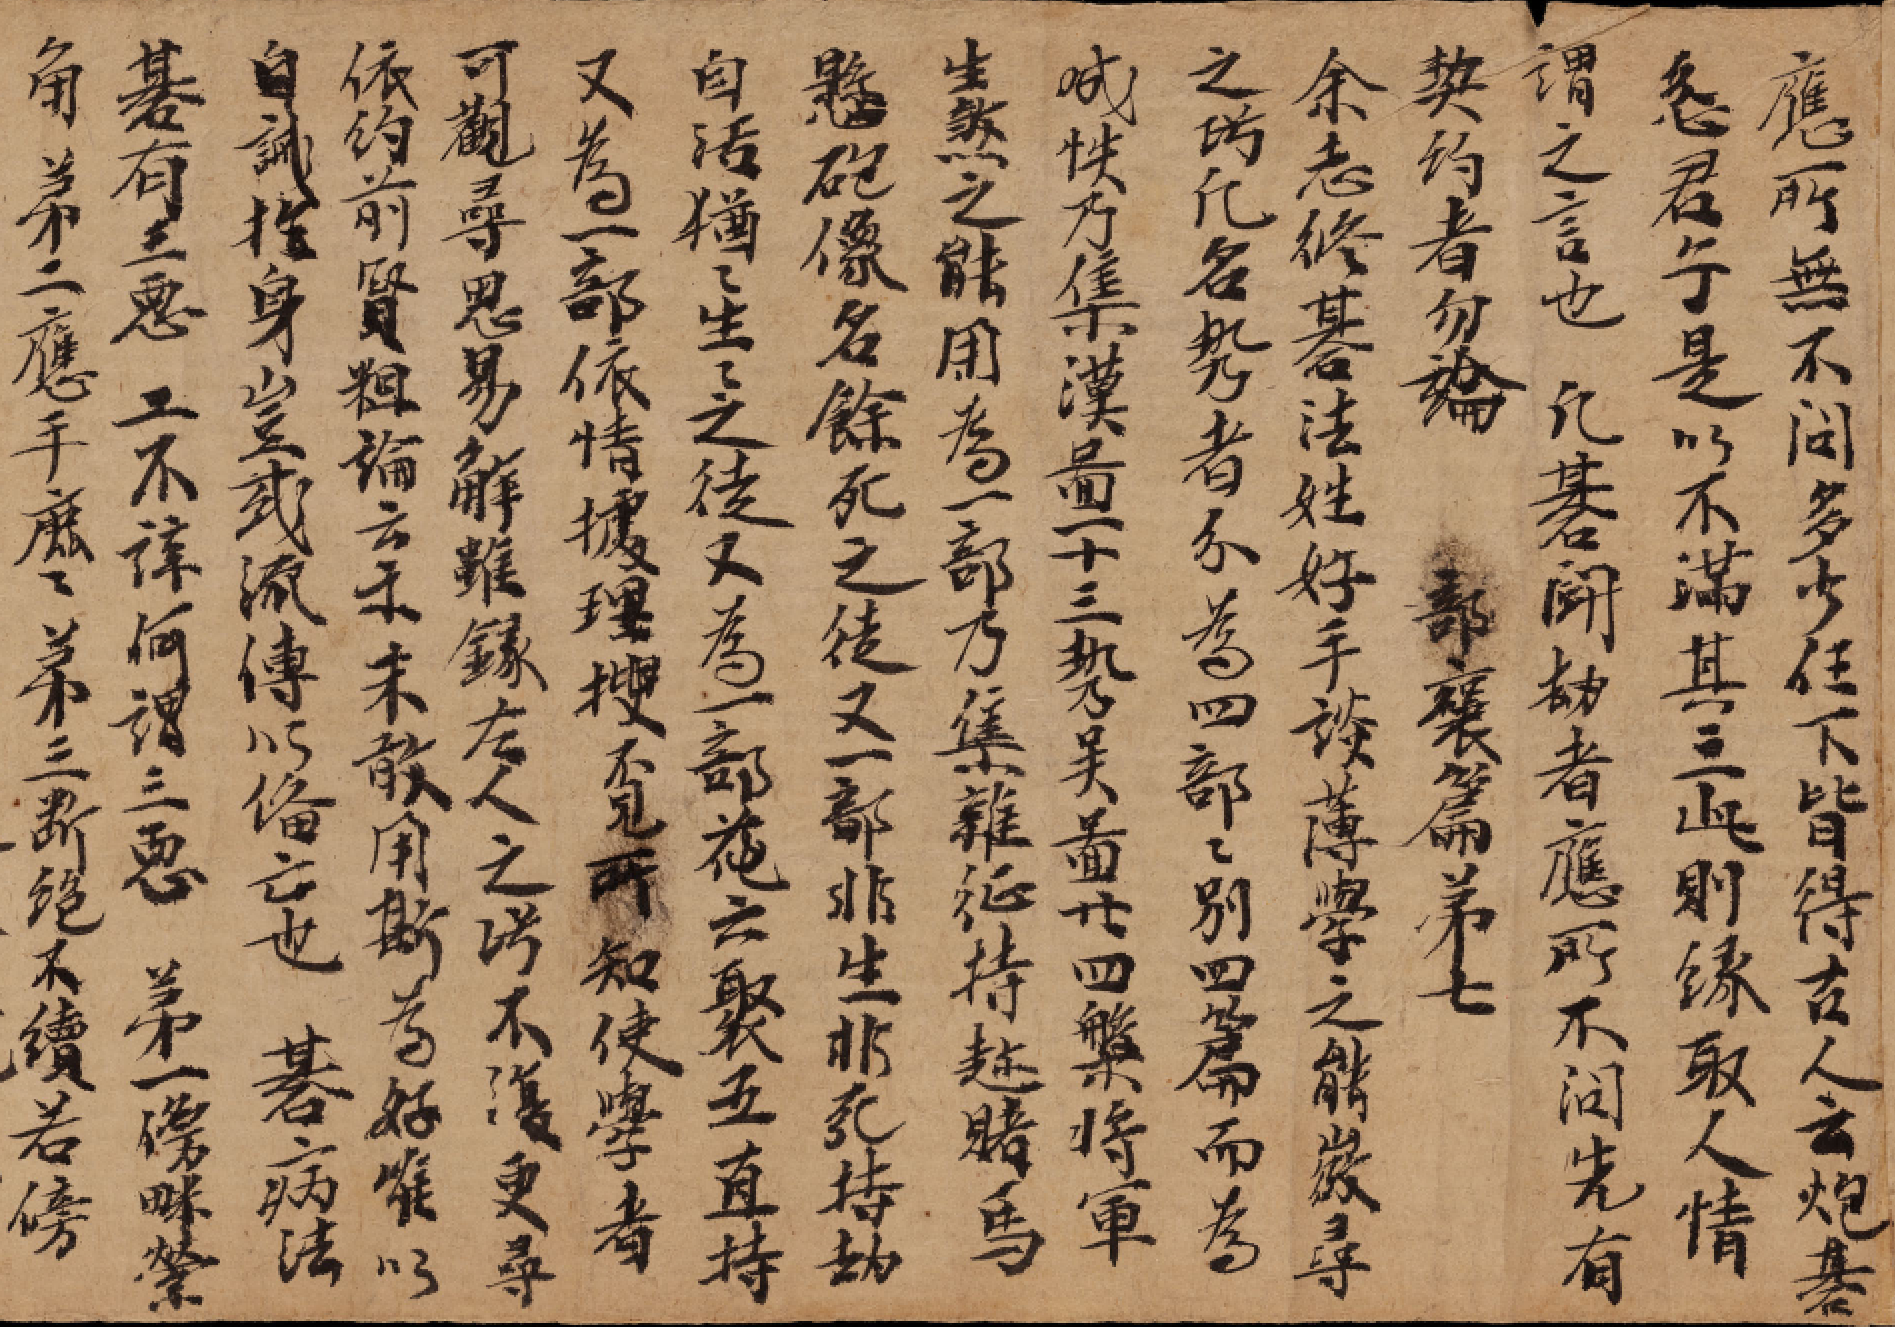 應所無不問多少任下皆得古人云炮碁
惡君子是以不滿其三此則緣取人情
謂之言也　凡碁鬪劫者應所不問先有
契約者勿論　部襄篇第七
余志修碁法性好手談薄學之能微尋
之巧凡名勢者分為四部〻別四篇而為
成帙乃集漢啚一十三勢吳啚廿四盤將軍
生煞之能用為一部乃集雜征持趂賭馬
懸砲像名餘死之徒又一部非生非死持劫
自活猶〻生〻之徒又為一部花六聚五直持
又為一部依情據理搜覓所知使學者
可觀尋思易解雖錄古人之巧不復更尋
依約前賢粗論云尒未敢用斯為好唯以
自誡於身豈或流傳以俻亡也　碁病法
碁有三惡　二不詳何謂三惡　第一傍畔縈
角　第二應手麁〻第三斷絕不續若傍